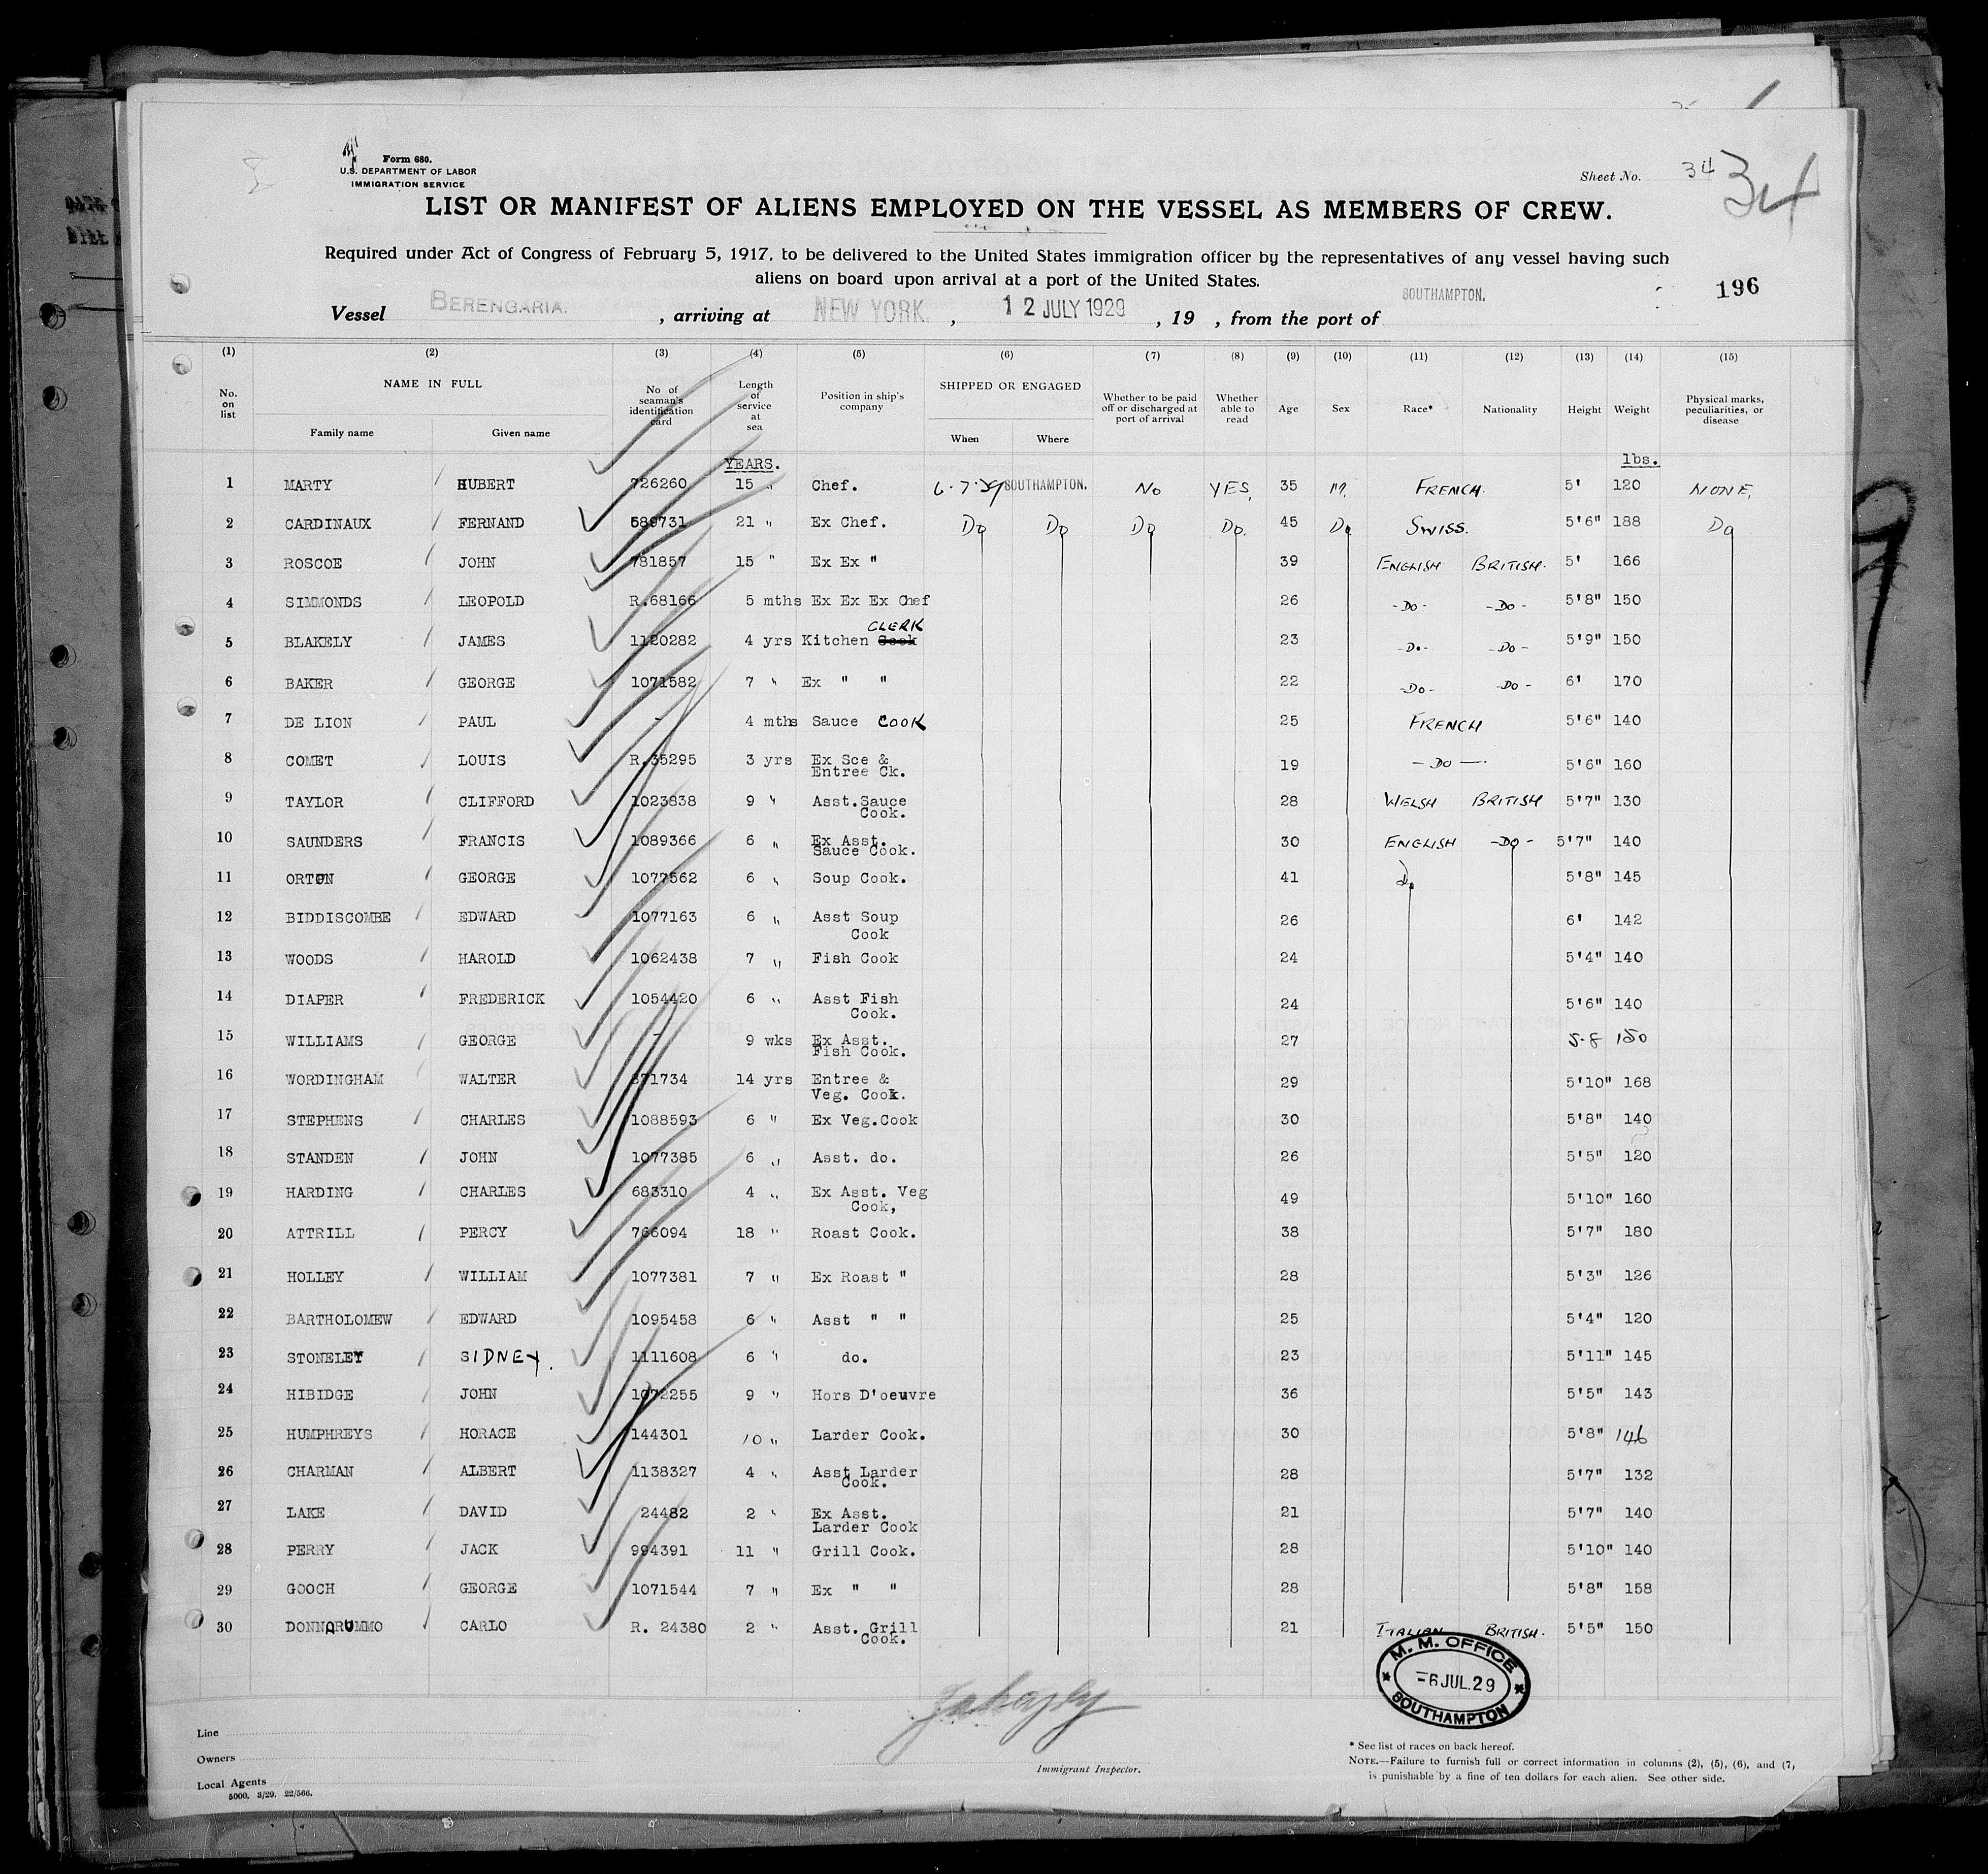 Form 680.
U.S. DEPARTMENT OF LABOR
IMMIGRATION SERVICE
Sheet No. 34 34
LIST OR MANIFEST OF ALIENS EMPLOYED ON THE VESSEL AS MEMBERS OF CREW.
Required under Act of Congress of February 5, 1917, to be delivered to the United States immigration officer by the representatives of any vessel having such
aliens on board upon arrival at a port of the United States.
196
Vessel BERENGARIA. , arriving at NEW YORK. , 12 JULY 1929 , 19 , from the port of SOUTHAMPTON.
(1) (2) (3) (4) (5) (6) (7) (8) (9) (10) (11) (12) (13) (14) (15)
No. on list NAME IN FULL Family name Given name No of seaman's identification card Length of service at sea Position in ship's company SHIPPED OR ENGAGED When Where Whether to be paid off or discharged at port of arrival Whether able to read Age Sex Race* Nationality Height Weight Physical marks, peculiarities, or disease
YEARS. lbs.
1 MARTY HUBERT 726260 15 " Chef. 6.7.29 SOUTHAMPTON. No YES, 35 M. FRENCH. 5' 120 NONE,
2 CARDINAUX FERNAND 589731 21 " Ex Chef. Do Do Do Do. 45 Do SWISS. 5'6" 188 Do
3 ROSCOE JOHN 781857 15 " Ex Ex " 39 ENGLISH BRITISH. 5' 166
4 SIMMONDS LEOPOLD R.68166 5 mths Ex Ex Ex Chef 26 -Do- -Do- 5'8" 150
5 BLAKELY JAMES 1120282 4 yrs Kitchen Cook CLERK 23 -Do- -Do- 5'9" 150
6 BAKER GEORGE 1071582 7 " Ex " " 22 -Do- -Do- 6' 170
7 DE LION PAUL - 4 mths Sauce COOK 25 FRENCH 5'6" 140
8 COMET LOUIS R.35295 3 yrs Ex Sce & Entree Ck. 19 -Do- 5'6" 160
9 TAYLOR CLIFFORD 1023838 9 " Asst.Sauce Cook. 28 WELSH BRITISH 5'7" 130
10 SAUNDERS FRANCIS 1089366 6 " Ex Asst. Sauce Cook. 30 ENGLISH -DO- 5'7" 140
11 ORTON GEORGE 1077562 6 " Soup Cook. 41 do 5'8" 145
12 BIDDISCOMBE EDWARD 1077163 6 " Asst Soup Cook 26 6' 142
13 WOODS HAROLD 1062438 7 " Fish Cook 24 5'4" 140
14 DIAPER FREDERICK 1054420 6 " Asst Fish Cook. 24 5'6" 140
15 WILLIAMS GEORGE - 9 wks Ex Asst. Fish Cook. 27 5.8 150
16 WORDINGHAM WALTER 871734 14 yrs Entree & Veg. Cook. 29 5'10" 168
17 STEPHENS CHARLES 1088593 6 " Ex Veg.Cook 30 5'8" 140
18 STANDEN JOHN 1077385 6 " Asst. do. 26 5'5" 120
19 HARDING CHARLES 683310 4 " Ex Asst. Veg Cook, 49 5'10" 160
20 ATTRILL PERCY 766094 18 " Roast Cook. 38 5'7" 180
21 HOLLEY WILLIAM 1077381 7 " Ex Roast " 28 5'3" 126
22 BARTHOLOMEW EDWARD 1095458 6 " Asst " " 25 5'4" 120
23 STONELEY SIDNEY. 1111608 6 " do. 23 5'11" 145
24 HIBIDGE JOHN 1072255 9 " Hors D'oeuvre 36 5'5" 143
25 HUMPHREYS HORACE 144301 10 " Larder Cook. 30 5'8" 146
26 CHARMAN ALBERT 1138327 4 " Asst Larder Cook. 28 5'7" 132
27 LAKE DAVID 24482 2 " Ex Asst. Larder Cook 21 5'7" 140
28 PERRY JACK 994391 11 " Grill Cook. 28 5'10" 140
29 GOOCH GEORGE 1071544 7 " Ex " " 28 5'8" 158
30 DONNARUMMO CARLO R. 24380 2 " Asst. Grill Cook. 21 ITALIAN BRITISH. 5'5" 150
M. M. OFFICE
-6 JUL. 29
SOUTHAMPTON
Line
Owners
Local Agents
5000. 3/29. 22/566.
Immigrant Inspector.
* See list of races on back hereof.
NOTE.—Failure to furnish full or correct information in columns (2), (5), (6), and (7,
is punishable by a fine of ten dollars for each alien. See other side.